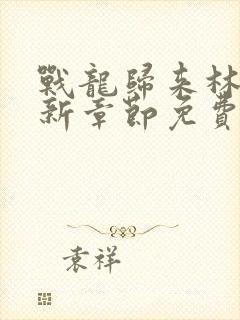 戰龍歸來林
新章節免費
袁祥